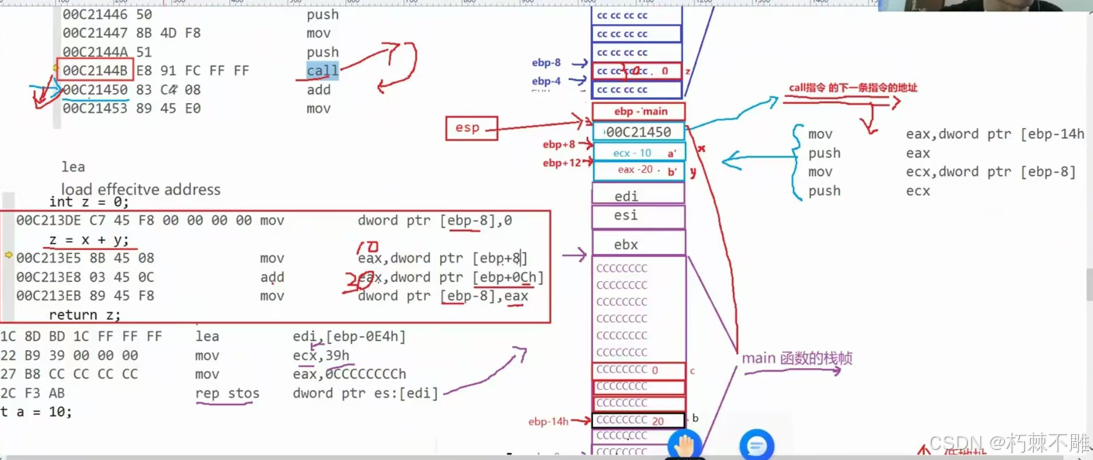 00C21446 50 push
00C21447 8B 4D F8 mov
00C2144A 51 push
00C2144B E8 91 FC FF FF call
00C21450 83 C4 08 add
00C21453 89 45 E0 mov
lea
load effecitve address
int z = 0;
00C213DE C7 45 F8 00 00 00 00 mov dword ptr [ebp-8],0
z = x + y;
10
00C213E5 8B 45 08 mov eax,dword ptr [ebp+8]
00C213E8 03 45 0C add eax,dword ptr [ebp+0Ch]
20
00C213EB 89 45 F8 mov dword ptr [ebp-8],eax
return z;
1C 8D BD 1C FF FF FF lea edi,[ebp-0E4h]
22 B9 39 00 00 00 mov ecx,39h
27 B8 CC CC CC CC mov eax,0CCCCCCCCh
2C F3 AB rep stos dword ptr es:[edi]
t a = 10;
cc cc cc cc
cc cc cc cc
cc cc cc cc
ebp-8
0 z
ebp-4
cc cc cc cc
ebp - main
esp
00C21450
ebp+8
ecx - 10 a' x
ebp+12
eax -20 b' y
edi
esi
ebx
CCCCCCCC
CCCCCCCC
CCCCCCCC
CCCCCCCC
CCCCCCCC
CCCCCCCC 0 c
CCCCCCCC
CCCCCCCC
ebp-14h
CCCCCCCC 20 b
CCCCCCCC
call指令 的下一条指令的地址
mov eax,dword ptr [ebp-14h
push eax
mov ecx,dword ptr [ebp-8]
push ecx
main 函数的栈帧
CSDN @朽棘不雕